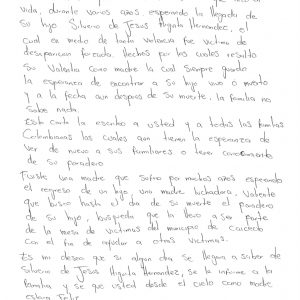 vida, durante varios años esperando la llegada de
su hijo Silverio de Jesus Higuita Hernandez, el
cual en medio de tanta violencia fue victima de
desaparicion forzada. Hechos por los cuales resalto
su valentia como madre la cual siempre guardo
la esperanza de encontrar a su hijo vivo o muerto
y a la fecha aun despues de su muerte la familia no
sabe nada.
Esta carta la escribo a usted y a todas las familias
Colombianas las cuales aun tienen la esperanza de
ver de nuevo a sus familiares o tener conocimiento
de su paradero
Fuiste una madre que sufrio por muchos años esperando
el regreso de un hijo, una madre luchadora, valiente
que busco hasta el dia de su muerte el paradero
de su hijo, busqueda que la llevo a ser parte
de la mesa de victimas del municipio de Caicedo
con el fin de ayudar a otras victimas.
Es mi deseo que si algun dia se llegara a saber de
Silverio de Jesus Higuita Hernandez, se le informe a la
familia y se que usted desde el cielo como madre
estara feliz